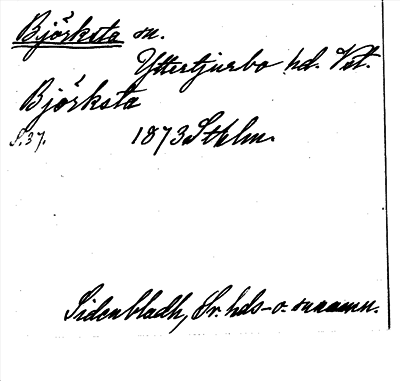 Björksta sn.
Yttertjurbo hd. Vst.
Björksta
S. 37. 1873 Sthlm.
Sidenbladh, Sv. hds- o. snnamn.